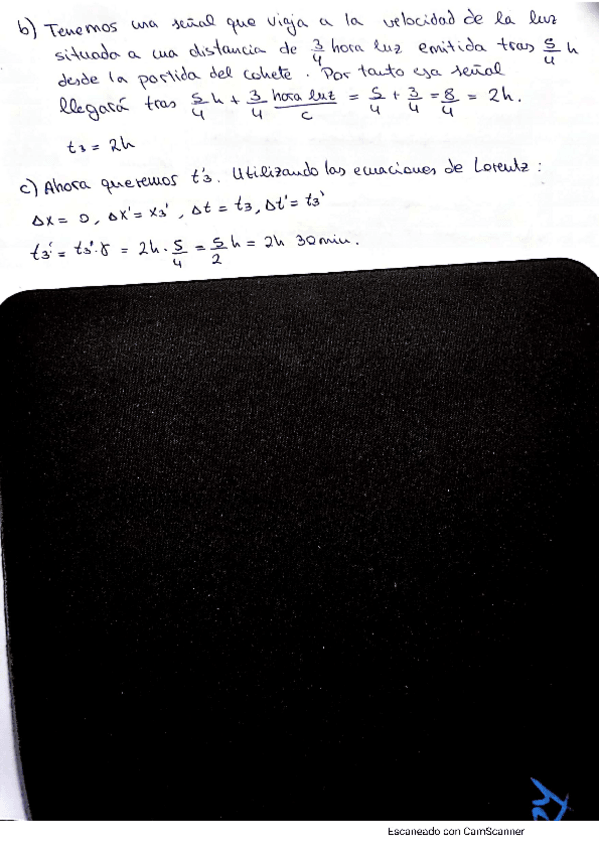 b) Tenemos una señal que viaja a la velocidad de la luz
situada a una distancia de 3/4 hora luz emitida tras 5/4 h
desde la partida del cohete. Por tanto esa señal
llegará tras 5/4 h + 3/4 hora luz/c = 5/4 + 3/4 = 8/4 = 2h.
t3 = 2h
c) Ahora queremos t'3. Utilizando las ecuaciones de Lorentz :
Δx = 0, Δx' = x3', Δt = t3, Δt' = t3'
t3' = t3'·γ = 2h · 5/4 = 5/2 h = 2h 30min.
Escaneado con CamScanner